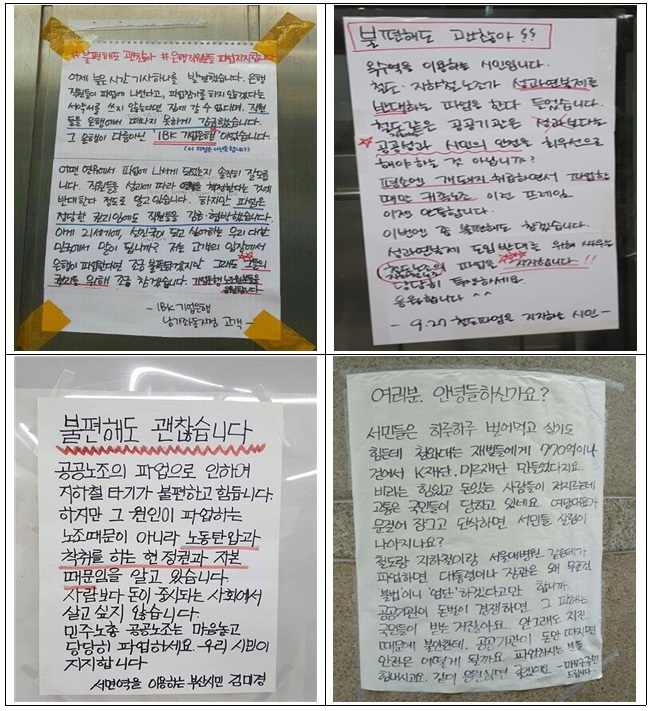 #불편해도 괜찮아 #은행직원들 파업지지합니다
어제 늦은 시간 기사하나를 발견했습니다. 은행
직원들이 파업에 나섰다고, 파업참가를 하지 않겠다는
서약서를 쓰지 않는다면 집에 갈 수 없다며, 직원
들을 은행에서 떠나지 못하게 감금했습니다.
그 은행이 다름아닌 'IBK 기업은행' 이었습니다.
어떤 연유에서 파업에 나서게 되었는지 솔직히 잘모릅
니다. 직원들을 성과에 따라 책정한다는 것에
반대한다 정도로 알고 있습니다. 하지만 파업은
정당한 권리임에도 직원들을 감금·협박했습니다.
이게 21세기에, 선진국이 되고 싶어하는 우리 대한
민국에서 말이 됩니까? 저는 고객의 입장에서
은행이 파업한다면 조금 불편하겠지만 그래도 그들의
권리를 위해 조금 참겠습니다. 기업은행 노동자분들을
응원합니다
- IBK 기업은행
남가좌동지점 고객 -
불편해도 괜찮아!!
옥수역을 이용하는 시민입니다.
철도·지하철노조가 성과연봉제를
반대하는 파업을 한다 들었습니다.
철도같은 공공기관은 성과보다는
공공성과 시민의 안전을 최우선으로
해야하는 것 아닙니까?
평소엔 개돼지 취급하면서 파업할
때만 귀족노조 이런 프레임
이젠 안통합니다.
이번엔 좀 불편해도 참겠습니다.
성과연봉제 도입 반대를 위해 싸우는
철도노조의 파업을 지지합니다!!
당당히 투쟁하세요.
응원합니다 ^^
- 9.27 철도파업을 지지하는 시민 -
불편해도 괜찮습니다
공공노조의 파업으로 인하여
지하철 타기가 불편하고 힘듭니다.
하지만 그 원인이 파업하는
노조때문이 아니라 노동탄압과
착취를 하는 현 정권과 자본
때문임을 알고 있습니다.
사람보다 돈이 중시되는 사회에서
살고 싶지 않습니다.
민주노총 공공노조는 마음놓고
당당히 파업하세요. 우리 시민이
지지합니다
서면역을 이용하는 부산시민 김미경
여러분. 안녕들하신가요?
서민들은 하루하루 벌어먹고 살기도
힘든데 청와대는 재벌들에게 770억이나
걷어서 K재단, 미르재단 만들었다지요.
비리는 힘있고 돈있는 사람들이 저지르는데
고통은 국민들이 당하고 있네요. 여당대표가
문걸어 잠그고 단식하면 서민들 살림이
나아지나요?
철도랑 지하철이랑 서울대병원 같은데가
파업하면 대통령이나 장관은 왜 무조건
불법이니 '엄단'하겠다고만 합니까.
공공기관이 돈벌이 경쟁하면 그 피해는
국민들이 받는 거잖아요. 안그래도 지진
때문에 불안한데, 공공기관이 돈만 따지면
안전은 어떻게 될까요. 파업하시는 분들
힘내시고요. 같이 응원하면 좋겠어요.
- 마포구주민
드립니다 -